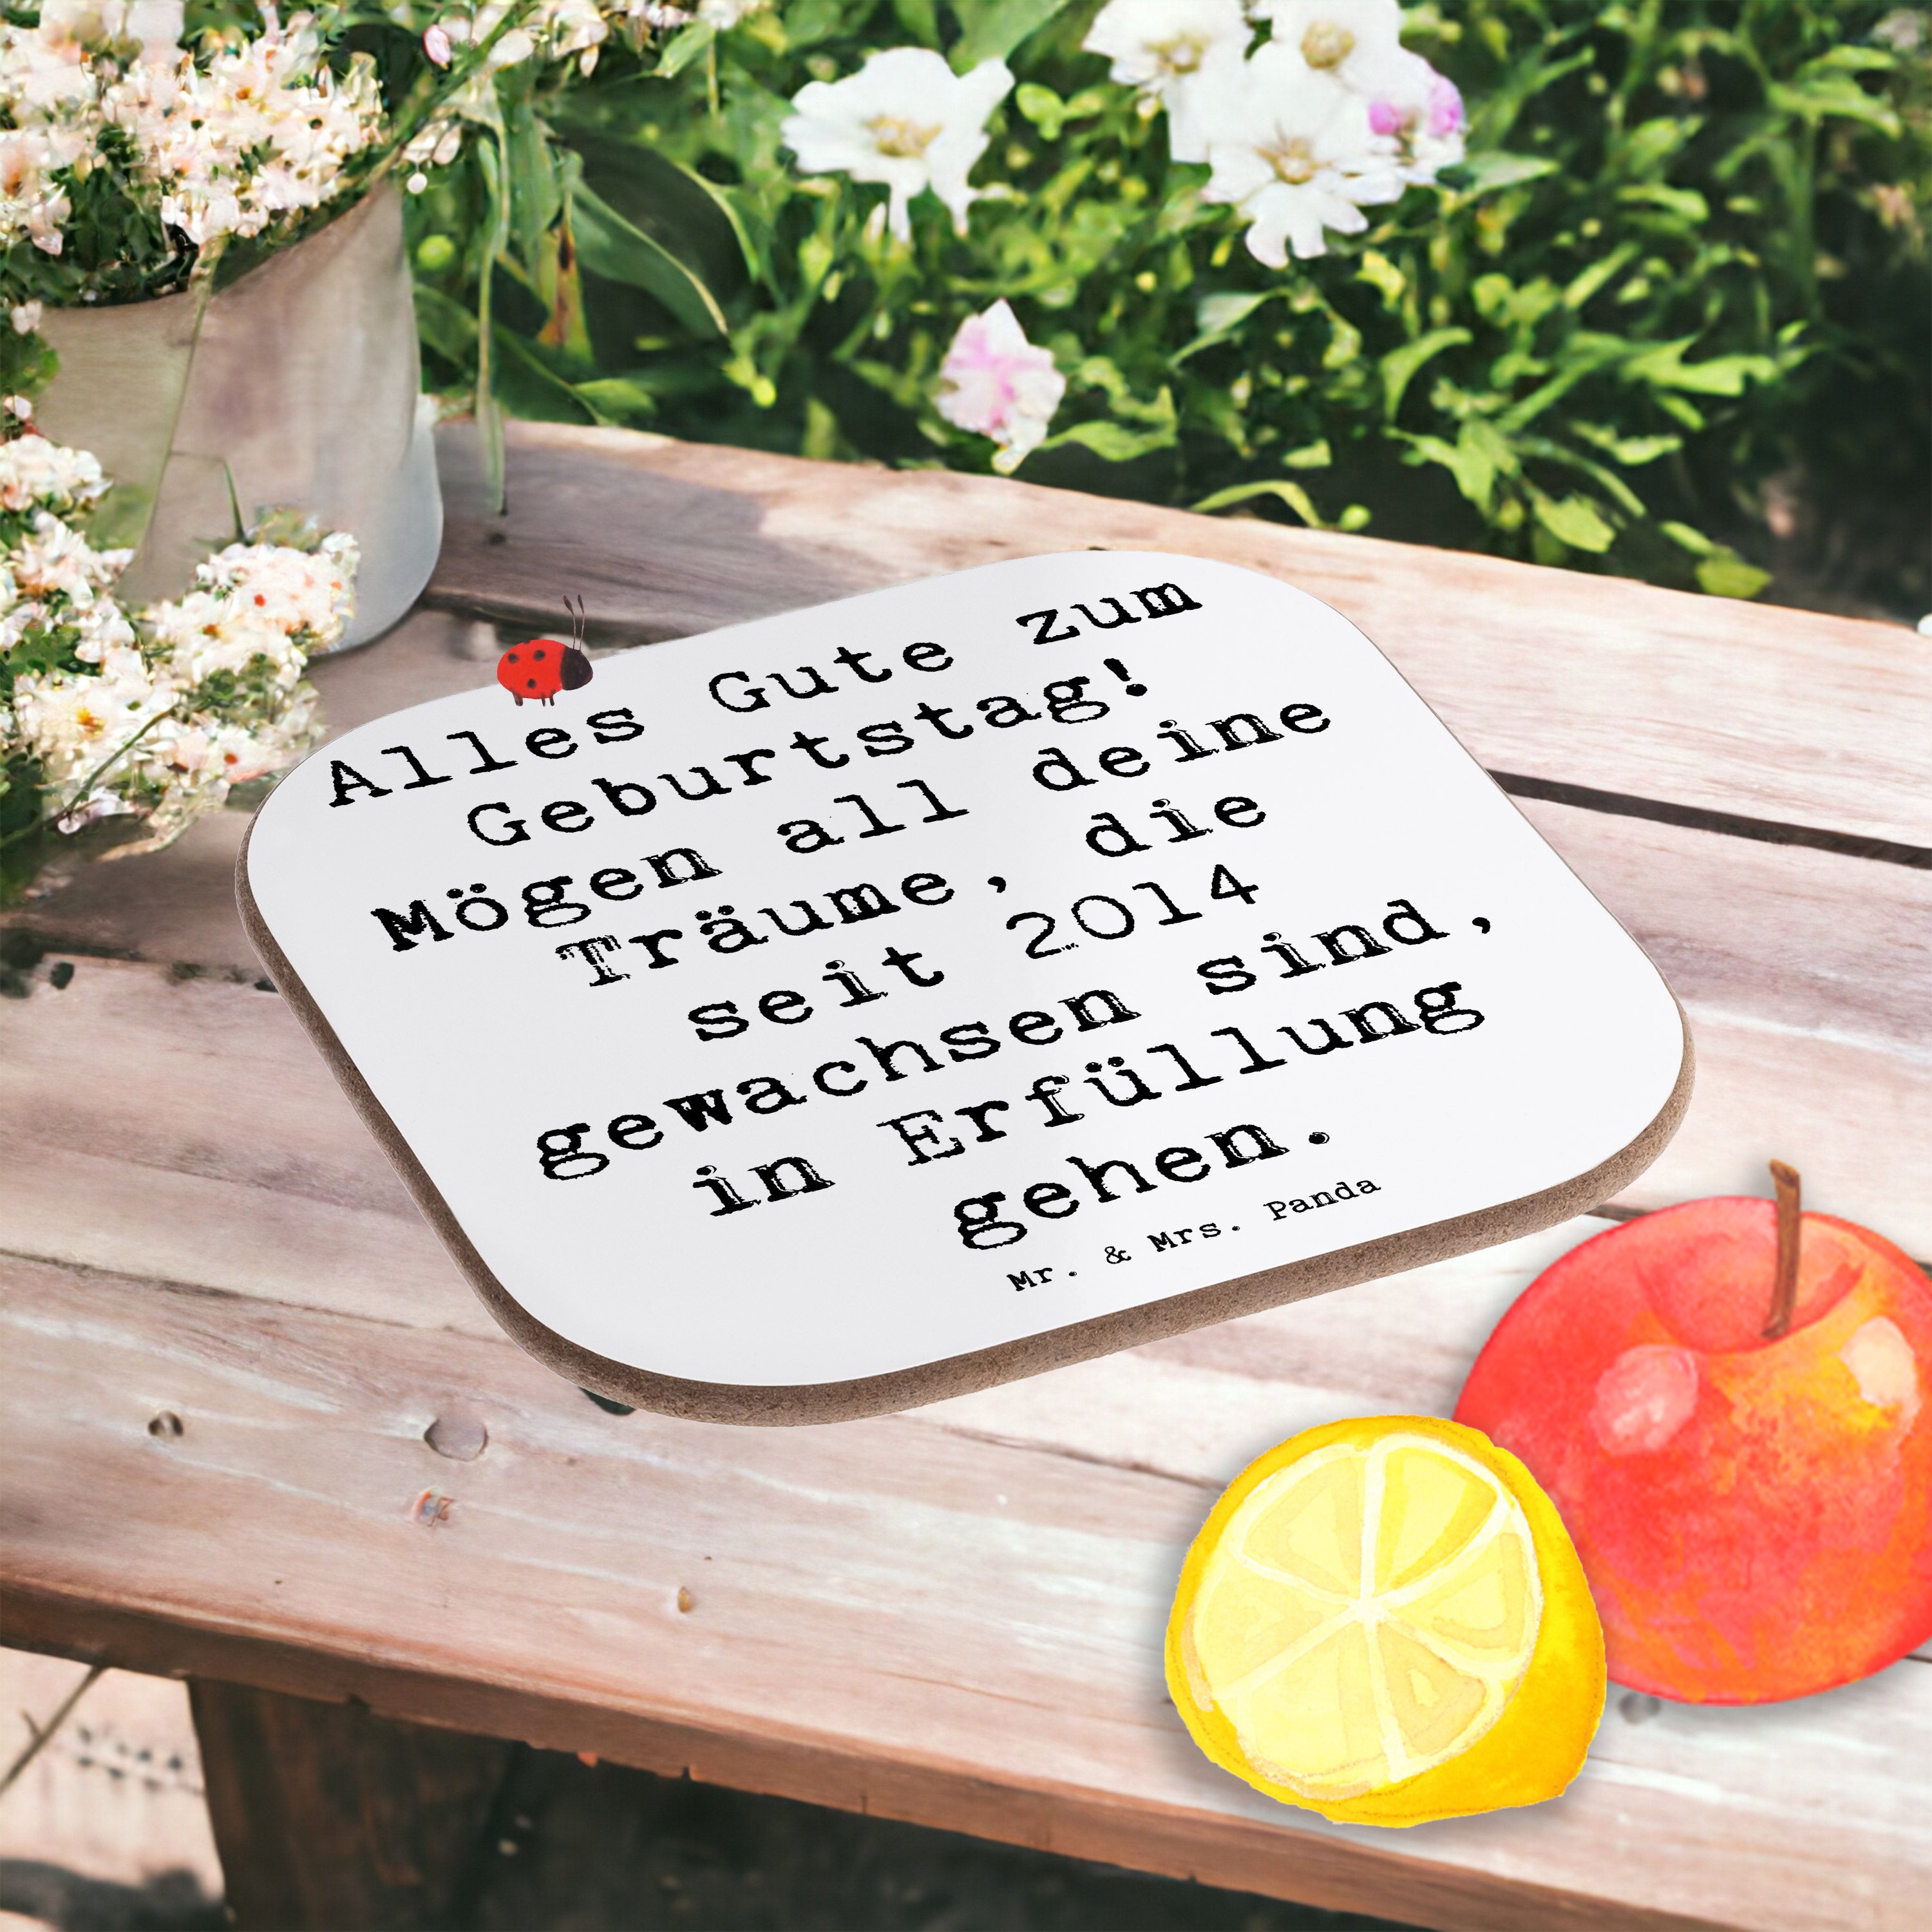 Alles Gute zum
Geburtstag!
Mögen all deine
Träume, die
seit 2014
gewachsen sind,
in Erfüllung
gehen.
Mr. & Mrs. Panda